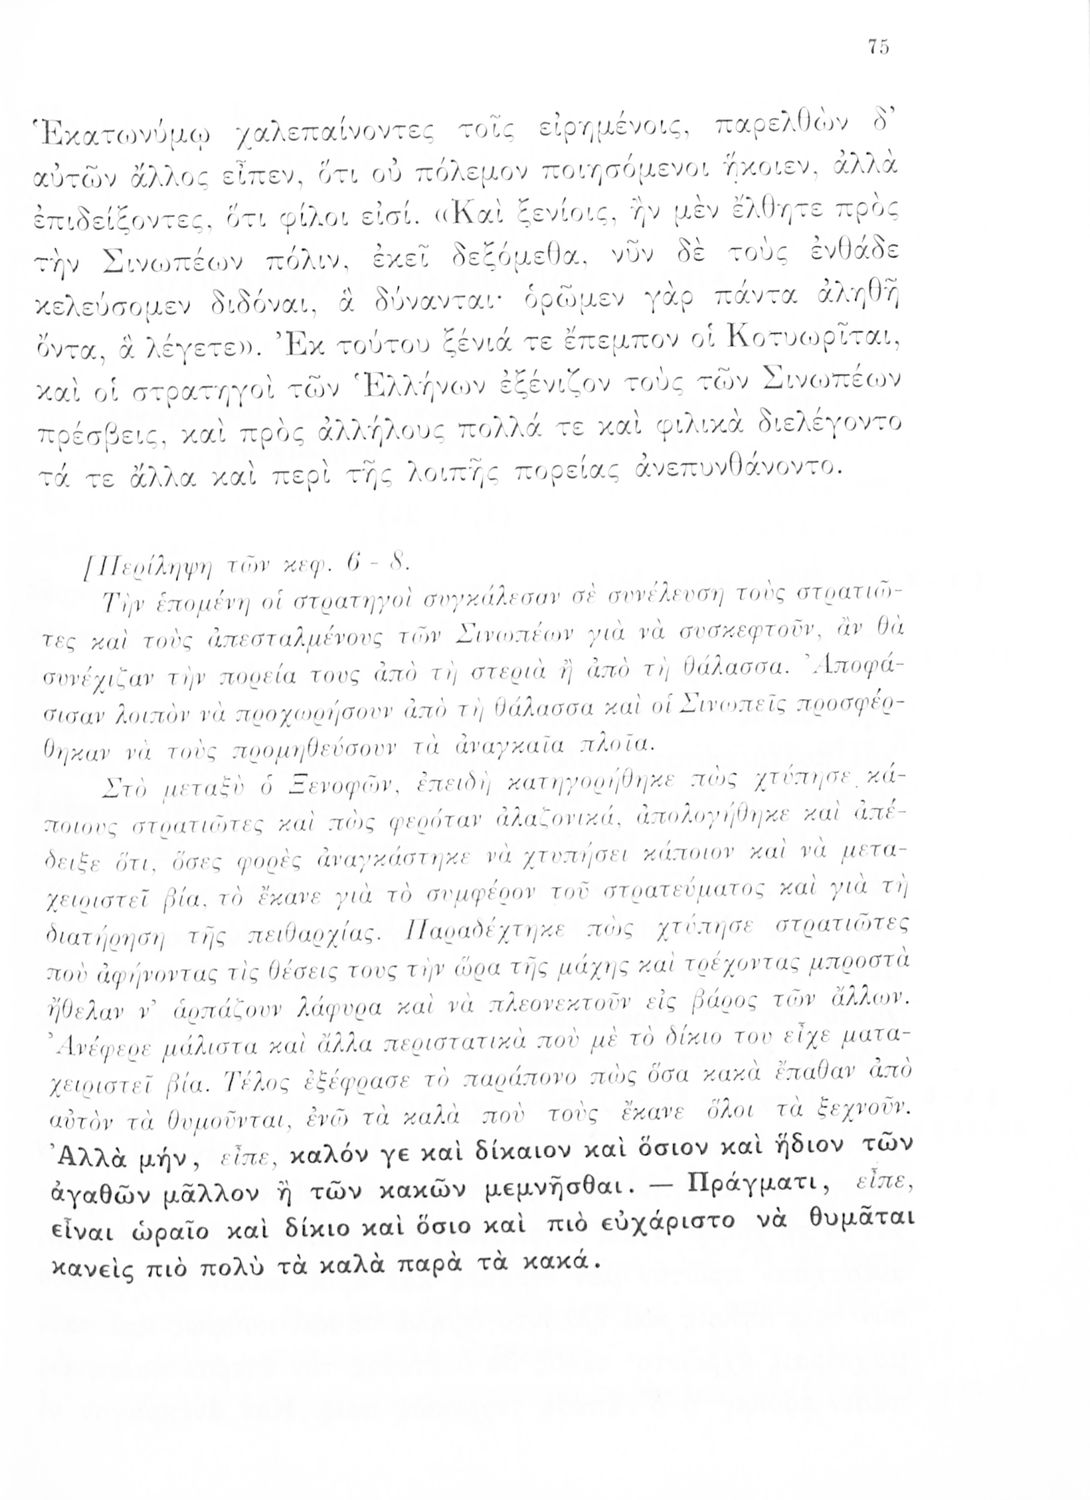 75
Ἑκατωνύμῳ χαλεπαίνοντες τοῖς εἰρημένοις, παρελθὼν δ’
αὐτῶν ἄλλος εἶπεν, ὅτι οὐ πόλεμον ποιησόμενοι ἥκοιεν, ἀλλὰ
ἐπιδείξοντες, ὅτι φίλοι εἰσί. «Καὶ ξενίοις, ἢν μὲν ἔλθητε πρὸς
τὴν Σινωπέων πόλιν, ἐκεῖ δεξόμεθα, νῦν δὲ τοὺς ἐνθάδε
κελεύσομεν διδόναι, ἃ δύνανται· ὁρῶμεν γὰρ πάντα ἀληθῆ
ὄντα, ἃ λέγετε». Ἐκ τούτου ξένιά τε ἔπεμπον οἱ Κοτυωρῖται,
καὶ οἱ στρατηγοὶ τῶν Ἑλλήνων ἐξένιζον τοὺς τῶν Σινωπέων
πρέσβεις, καὶ πρὸς ἀλλήλους πολλά τε καὶ φιλικὰ διελέγοντο
τά τε ἄλλα καὶ περὶ τῆς λοιπῆς πορείας ἀνεπυνθάνοντο.
[Περίληψη τῶν κεφ. 6 - 8.
Τὴν ἑπομένη οἱ στρατηγοὶ συγκάλεσαν σὲ συνέλευση τοὺς στρατιῶ-
τες καὶ τοὺς ἀπεσταλμένους τῶν Σινωπέων γιὰ νὰ συσκεφτοῦν, ἂν θὰ
συνέχιζαν τὴν πορεία τους ἀπὸ τὴ στεριὰ ἢ ἀπὸ τὴ θάλασσα. Ἀποφά-
σισαν λοιπὸν νὰ προχωρήσουν ἀπὸ τὴ θάλασσα καὶ οἱ Σινωπεῖς προσφέρ-
θηκαν νὰ τοὺς προμηθεύσουν τὰ ἀναγκαῖα πλοῖα.
Στὸ μεταξὺ ὁ Ξενοφῶν, ἐπειδὴ κατηγορήθηκε πὼς χτύπησε κά-
ποιους στρατιῶτες καὶ πὼς φερόταν ἀλαζονικά, ἀπολογήθηκε καὶ ἀπέ-
δειξε ὅτι, ὅσες φορὲς ἀναγκάστηκε νὰ χτυπήσει κάποιον καὶ νὰ μετα-
χειριστεῖ βία, τὸ ἔκανε γιὰ τὸ συμφέρον τοῦ στρατεύματος καὶ γιὰ τὴ
διατήρηση τῆς πειθαρχίας. Παραδέχτηκε πὼς χτύπησε στρατιῶτες
ποὺ ἀφήνοντας τὶς θέσεις τους τὴν ὥρα τῆς μάχης καὶ τρέχοντας μπροστὰ
ἤθελαν ν’ ἁρπάζουν λάφυρα καὶ νὰ πλεονεκτοῦν εἰς βάρος τῶν ἄλλων.
Ἀνέφερε μάλιστα καὶ ἄλλα περιστατικὰ ποὺ μὲ τὸ δίκιο του εἶχε ματα-
χειριστεῖ βία. Τέλος ἐξέφρασε τὸ παράπονο πὼς ὅσα κακὰ ἔπαθαν ἀπὸ
αὐτὸν τὰ θυμοῦνται, ἐνῶ τὰ καλὰ ποὺ τοὺς ἔκανε ὅλοι τὰ ξεχνοῦν.
Ἀλλὰ μήν, εἶπε, καλόν γε καὶ δίκαιον καὶ ὅσιον καὶ ἥδιον τῶν
ἀγαθῶν μᾶλλον ἢ τῶν κακῶν μεμνῆσθαι. — Πράγματι, εἶπε,
εἶναι ὡραῖο καὶ δίκιο καὶ ὅσιο καὶ πιὸ εὐχάριστο νὰ θυμᾶται
κανεὶς πιὸ πολὺ τὰ καλὰ παρὰ τὰ κακά.